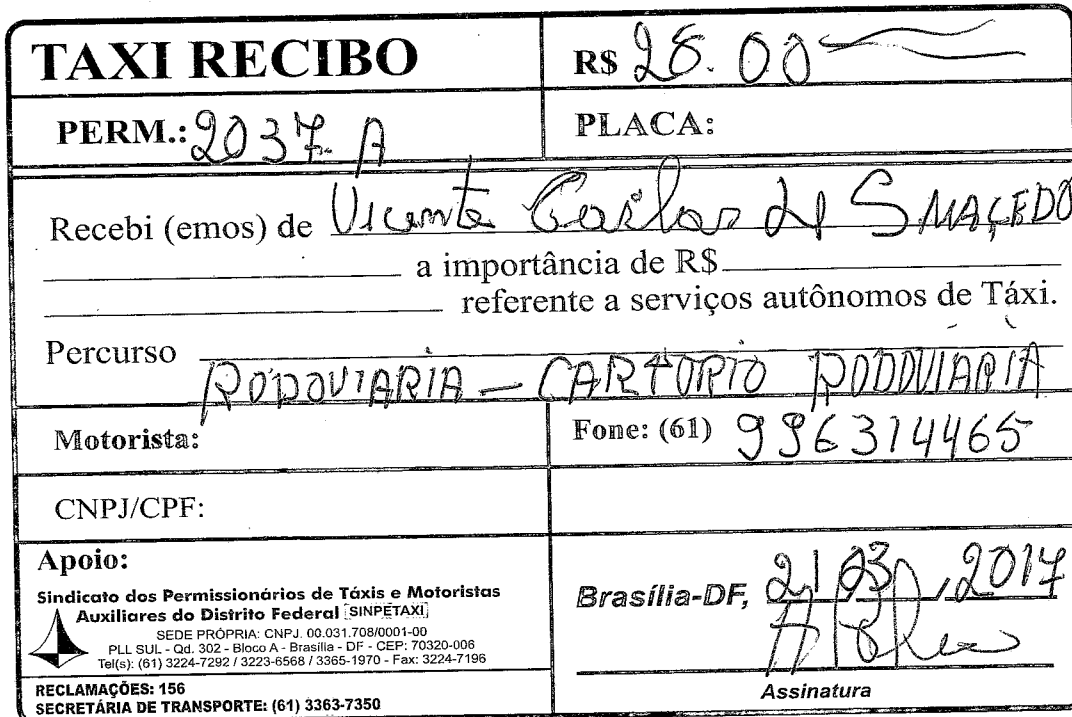 TAXI RECIBO
R$ 28.00
PERM.: 2037 A
PLACA:
Recebi (emos) de Vicente Carlos de S MACEDO
a importância de R$
referente a serviços autônomos de Táxi.
Percurso RODOVIARIA - CARTORIO RODOVIARIA
Motorista:
Fone: (61) 996314465
CNPJ/CPF:
Apoio:
Sindicato dos Permissionários de Táxis e Motoristas
Auxiliares do Distrito Federal [SINPETAXI]
SEDE PRÓPRIA: CNPJ. 00.031.708/0001-00
PLL SUL - Qd. 302 - Bloco A - Brasília - DF - CEP: 70320-006
Tel(s): (61) 3224-7292 / 3223-6568 / 3365-1970 - Fax: 3224-7196
RECLAMAÇÕES: 156
SECRETÁRIA DE TRANSPORTE: (61) 3363-7350
Brasília-DF, 21 03 2017
Assinatura